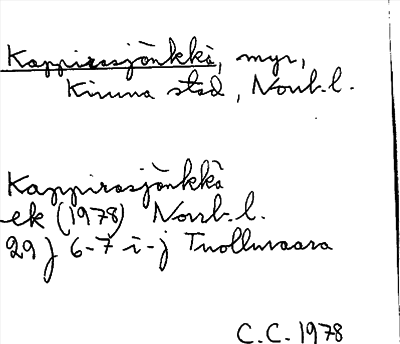 Kappirasjänkkä, myr,
Kiruna stad, Norrb.l.
Kappirasjänkkä
ek (1978) Norrb.l.
29J 6-7 i-j Tuolluvaara
C.C. 1978